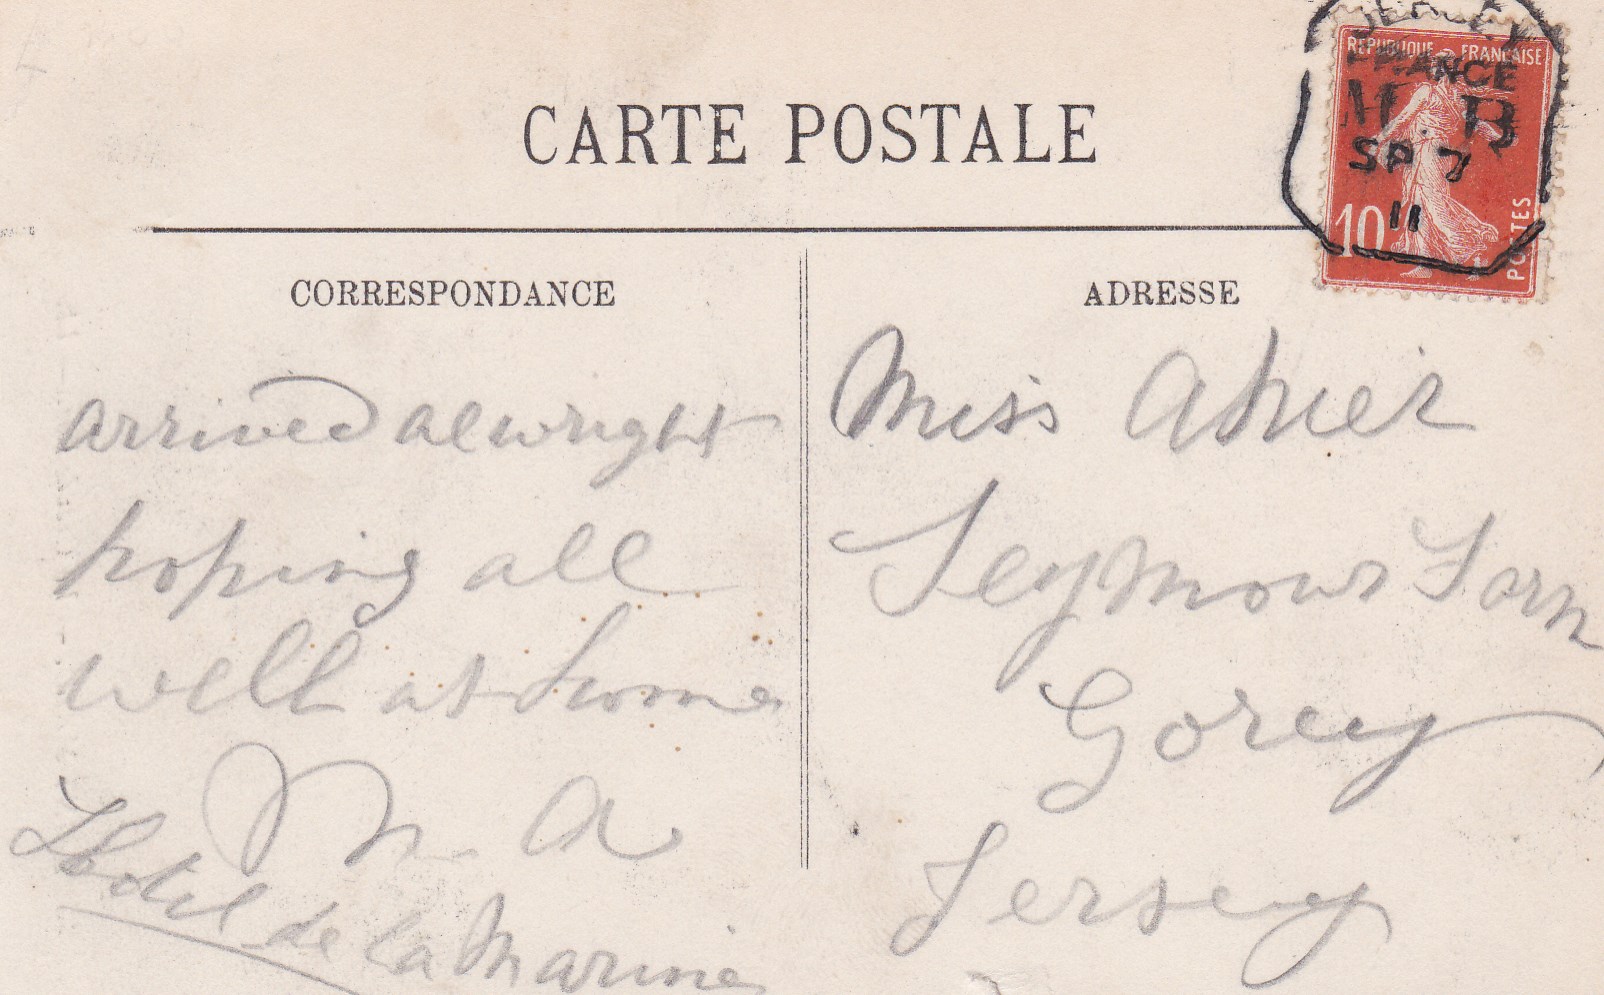 CARTE POSTALE
JERSEY
FRANCE
M. B
SP 7
11
REPUBLIQUE FRANÇAISE
10c
POSTES
CORRESPONDANCE
arrived alwright
hoping all
well at home
M. A
Hotel de la Marine
ADRESSE
Miss Ahier
Seymour Farm
Gorey
Jersey